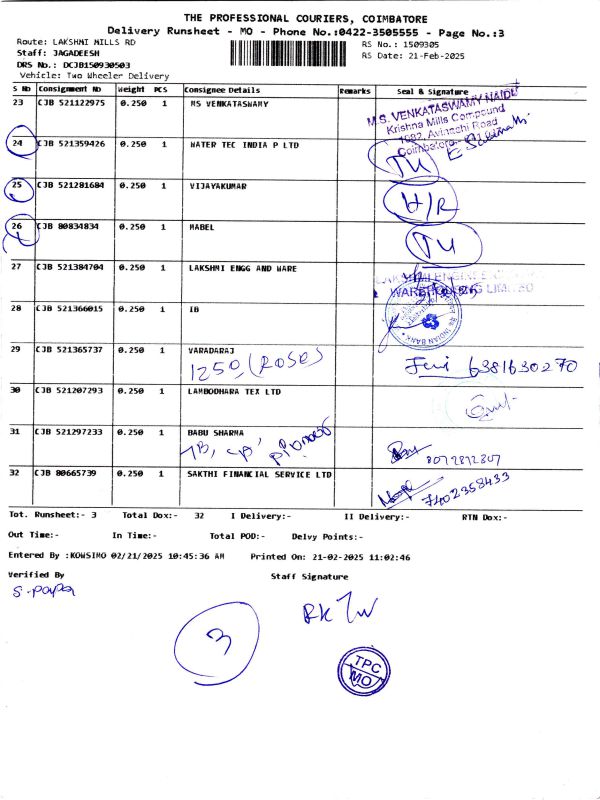 THE PROFESSIONAL COURIERS, COIMBATORE
Delivery Runsheet - MO - Phone No.:0422-3505555 - Page No.:3
Route: LAKSHMI MILLS RD
RS No.: 1509305
Staff: JAGADEESH
RS Date: 21-Feb-2025
DRS No.: DCJB150930503
Vehicle: Two Wheeler Delivery
S No Consignment No Weight PCS Consignee Details Remarks Seal & Signature
23 CJB 521122975 0.250 1 MS VENKATASWAMY
M.S. VENKATASWAMY NAIDU
Krishna Mills Compound
1082, Avinashi Road
24 CJB 521359426 0.250 1 WATER TEC INDIA P LTD
25 CJB 521281684 0.250 1 VIJAYAKUMAR
H/R
26 CJB 80834834 0.250 1 MABEL
27 CJB 521384704 0.250 1 LAKSHMI ENGG AND WARE
LAKSHMI ENGINEERING
WAREHOUSING LIMITED
28 CJB 521366015 0.250 1 IB
INDIAN BANK
29 CJB 521365737 0.250 1 VARADARAJ
1250 (ROSE)
6381630270
30 CJB 521207293 0.250 1 LAMBODHARA TEX LTD
31 CJB 521297233 0.250 1 BABU SHARMA
7B, 'B'
8072872807
32 CJB 80665739 0.250 1 SAKTHI FINANCIAL SERVICE LTD
7402358433
Tot. Runsheet:- 3 Total Dox:- 32 I Delivery:- II Delivery:- RTN Dox:-
Out Time:- In Time:- Total POD:- Delvy Points:-
Entered By :KOWSIMO 02/21/2025 10:45:36 AM Printed On: 21-02-2025 11:02:46
Verified By Staff Signature
S. Papa
3
TPC
MO